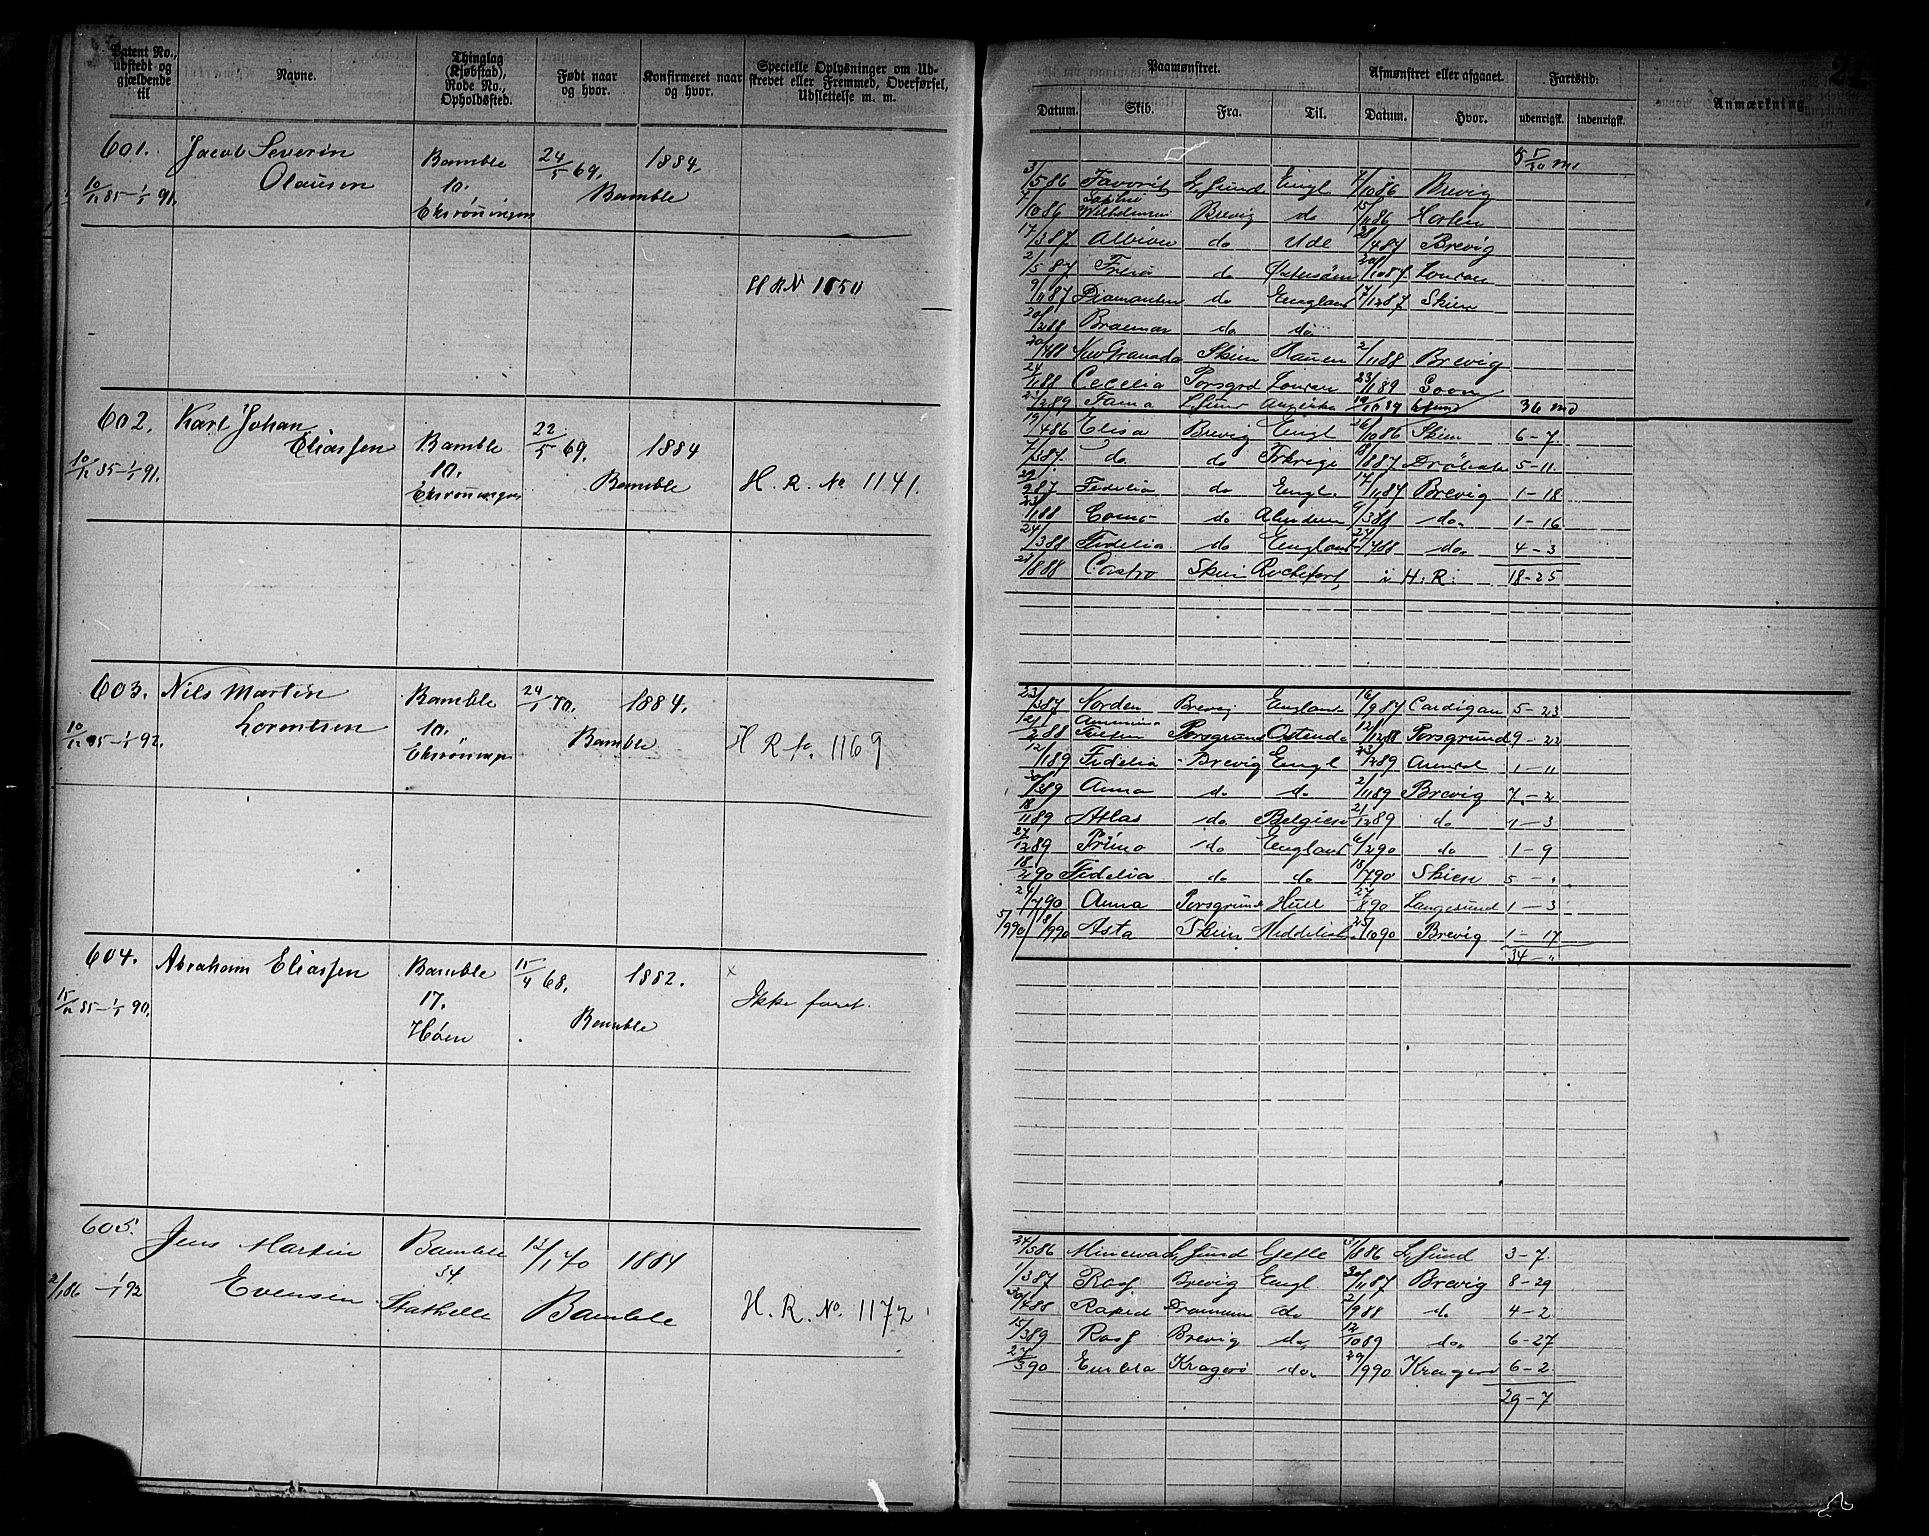 Patent No., udstedt og gjældende til
Navne.
Thinglag (Kjøbstad), Rode No., Opholdssted.
Født naar og hvor.
Konfirmeret naar og hvor.
Specielle Oplysninger om Udskrevet eller Fremmed, Overførsel, Udslettelse m. m.
Paamønstret.
Afmønstret eller afgaaet.
Fartstid:
Anmærkning
Datum. Skib. Fra. Til. Datum. Hvor. udenrigsk. indenrigsk.
601. Jacob Severin Olausen Bamble 10. 24/5 69. 1884. Bamble
10/12 85–1/1 91.
5 5/20 md
3/5 86 Favorit L. Sund Engl 7/10 86 Brevig
7/10 86 Wilhelmine Brevig do 15/11 86 Horten
17/3 87 Albion do Ude 28/4 87 Brevig
2/5 87 Freia do 20/10 87
9/11 87 Diamanten do England 17/12 87 Skien
20/2 88 Braemar do do
20/4 88 New Granada Skien Rauen 2/11 88 Brevig
24/11 88 Cecelia Porsgrd 23/1 89
23/2 89 Fama L. Sund 19/10 89 36 md
602. Karl Johan Eliassen Bamble 10. 22/5 69. 1884 Bamble H. R. No 1141.
10/12 85–1/1 91.
19/4 86 Elisa Brevig Engl 26/10 86 Skien 6–7.
7/3 87 do. do 5–11.
29/9 87 Fidelia do Engl. 17/11 87 Brevig 1–18
23/1 88 Como do 9/3 88 do. 1–16
24/3 88 Fidelia do England 27/7 88 do. 4–3
21/8 88 Castro Skien Rochefort, i H. R. 18–25
603. Nils Martin Lorentsen Bamble 10. 24/1 70. 1884. Bamble H R No. 1169
10/12 85–1/1 92.
23/3 87 Norden Brevig England 16/9 87 Cardigan 5–23
21/2 88 Porsgrund Ostende 12/12 88 Porsgrund 9–22
12/1 89 Fidelia Brevig Engl 23/2 89 1–11
30/3 89 Anna do do 2/11 89 Brevig 7–2
18/11 89 Atlas do Belgien 21/12 89 do 1–3
27/12 89 Primo do England 6/2 90 do 1–9
18/2 90 Fidelia do do 18/7 90 Skien 5–"
24/7 90 Anna Porsgrund Hull 27/8 90 Langesund 1–3
5/9 90 18/9 90 Asta Skien 25/10 90 Brevig 1–17
34–"
604. Abraham Eliassen Bamble 17. Høen 15/4 68. 1882. Bamble x Ikke faret.
15/12 85–1/1 90.
605. Jens Martin Evensen Bamble 34 Stathelle 12/1 70 1884 Bamble H. R. No. 1172
2/1 86 –1/1 92
24/5 86 L. Sund Gefle 31/8 86 L. Sund 3–7.
1/3 87 Brevig Engl. 30/11 87 Brevig 8–29
30/4 88 Rapid Drammen do 2/9 88 do 4–2
15/3 89 Brevig do 12/10 89 do. 6–27
27/3 90 Embla Kragerø do. 29/9 90 Kragerø 6–2
29–7